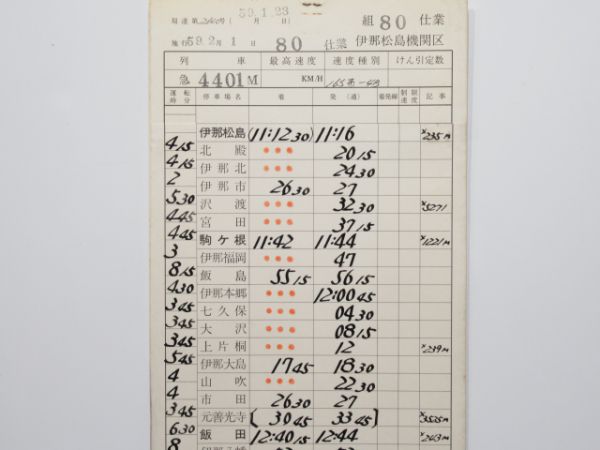 59.1.23
周達第2442号( 月 日) 組 80 仕業
施行 59.2月1日 80 仕業 伊那松島機関区
列車 最高速度 速度種別 けん引定数
急 4401M KM/H 165系-43
運転時分 停車場名 着 発(通) 着発線 制限速度 記事
伊那松島 (11:12 30) 11:16 ×235M
4 15 北殿 ••• 20 15
4 15 伊那北 ••• 24 30
2 伊那市 26 30 27
5 30 沢渡 ••• 32 30 ×5271
4 45 宮田 ••• 37 15
4 45 駒ケ根 11:42 11:44 ×1221M
3 伊那福岡 ••• 47
8 15 飯島 55 15 56 15
4 30 伊那本郷 ••• 12:00 45
3 45 七久保 ••• 04 30
3 45 大沢 ••• 08 15
3 45 上片桐 ••• 12 ×239M
5 45 伊那大島 17 45 18 30
4 山吹 ••• 22 30
4 市田 26 30 27
3 45 元善光寺 [30 45 33 45] ×3525M
6 30 飯田 12:40 15 12:44 ×243M
8